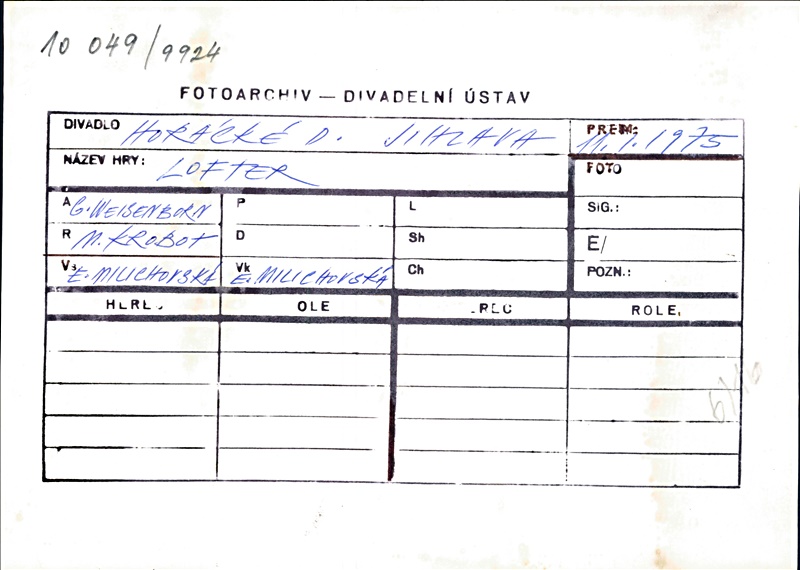 10 049/9924
FOTOARCHIV — DIVADELNÍ ÚSTAV
DIVADLO HORÁCKÉ D. JIHLAVA
PREM: 11.1.1975
NÁZEV HRY: LOFTER
FOTO
A G. WEISENBORN
P
L
SIG.:
R M. KROBOT
D
Sh
E/
Vs E. MILICHOVSKÁ
Vk E. MILICHOVSKÁ
Ch
POZN.:
HEREC OLE REC ROLE